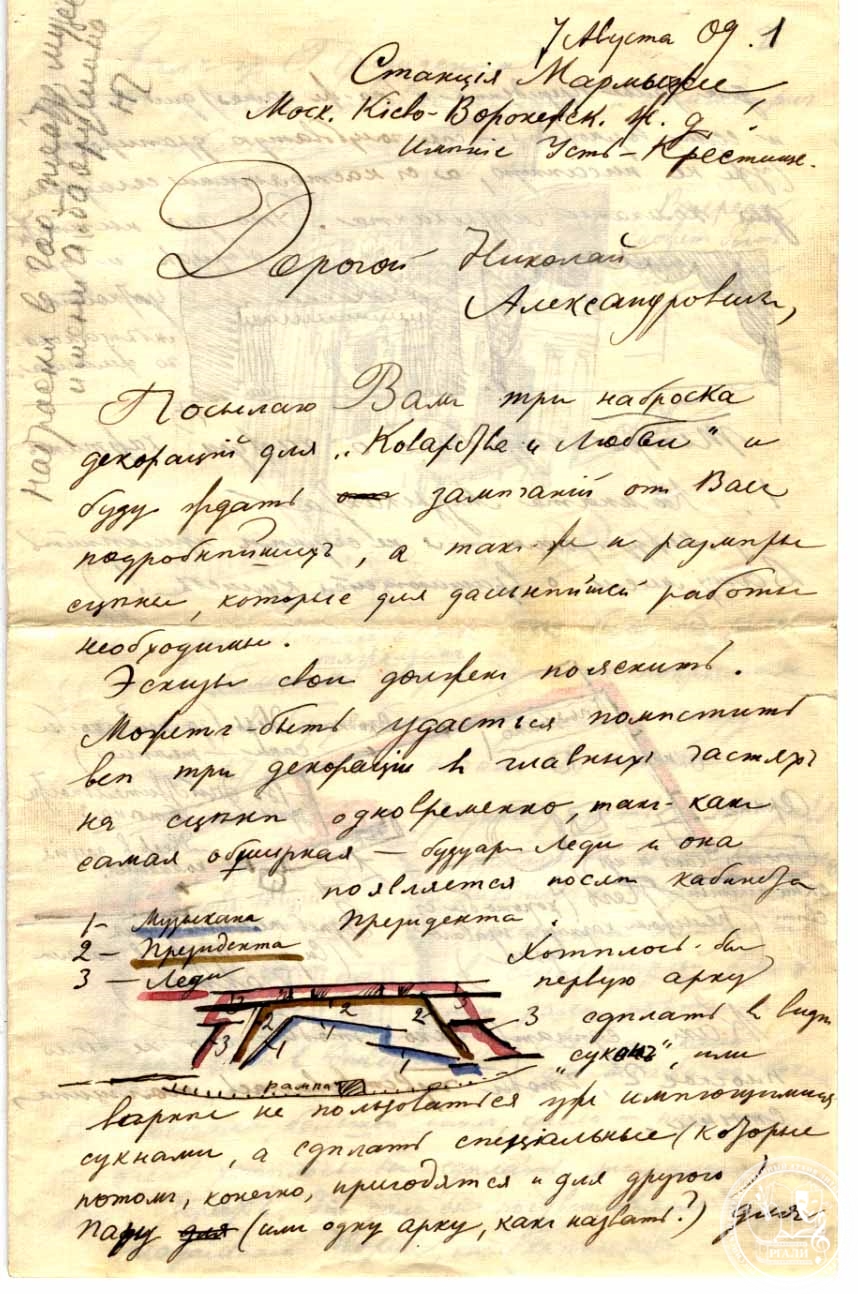 7 Августа 09. 1
Станція Мармыжи,
Моск. Кіево-Воронежск. ж. д.
Имѣніе Усть-Крестище.
наброски в гос. театр. музее
имени А. Бахрушина
Дорогой Николай
Александровичъ,
Посылаю Вамъ три наброска
декорацій для „Коварства и Любви" и
буду ждать замѣчаній отъ Васъ
подробнѣйшихъ, а также и размѣры
сцены, которые для дальнѣйшей работы
необходимы.
Эскизы свои долженъ пояснить.
Можетъ-быть удастся помѣстить
всѣ три декораціи въ главныхъ частяхъ
на сценѣ одновременно, такъ-какъ
самая обширная — будуаръ Леди и она
появляется послѣ кабинета
Президента.
1 - Музыкана
2 - Президента
3 - Леди
Хотѣлось-бы
первую арку
3 сдѣлать въ видѣ
„суконъ", или
3 3 2 2 2 1 1 1 3
рампа
вѣрнѣе не пользоваться уже имѣющимися
сукнами, а сдѣлать спеціальные (которые
потомъ, конечно, пригодятся и для другого)
Пару для (или одну арку, какъ назвать?) для
РГАЛИ